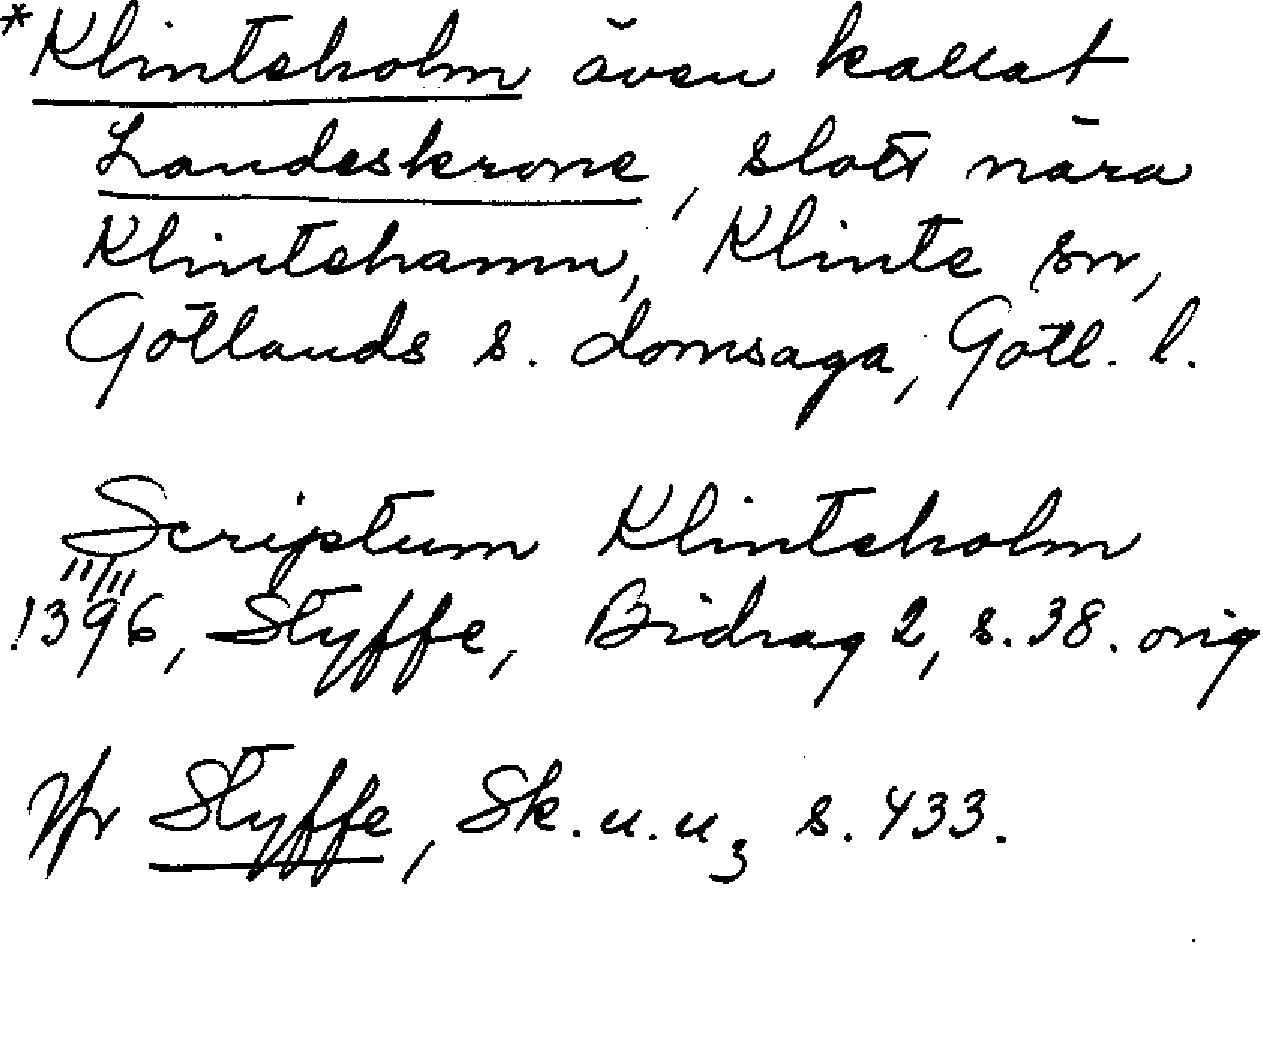 *Klinteholm även kallat
Landeskrone, slott nära
Klintehamn, Klinte sn,
Gotlands s. domsaga, Gotl. l.
Scriptum Klinteholm
1396, Styffe, Bidrag 2, s. 38. orig
Jfr Styffe, Sk.u.u₃ s. 433.